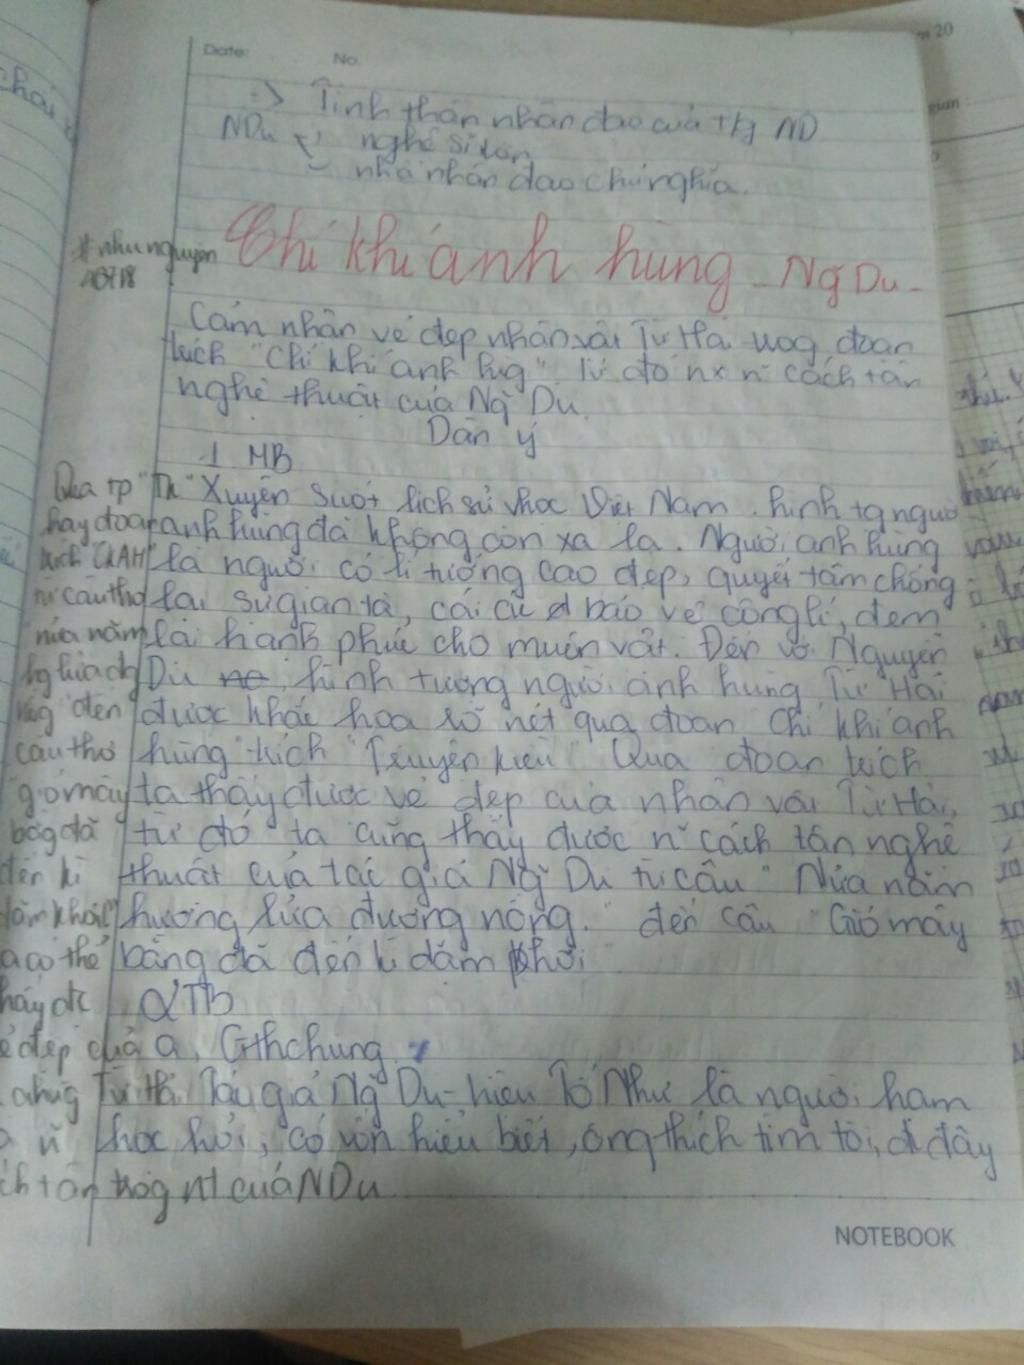 Date: No.
=> Tinh thần nhân đạo của thg ND
NDu nghệ sĩ lớn
- nhà nhân đạo chủ nghĩa.
#nhunguyen
Chí khí anh hùng - Ng Du -
Cảm nhận vẻ đẹp nhân vật Từ Hải trog đoạn
trích "Chí khí anh hùg" Từ đó nx n cách tân
nghệ thuật của Ng Du.
Dàn ý
1 MB
Xuyên suốt lịch sử vhọc Việt Nam. hình tg người
anh hùng đã không còn xa lạ. Người anh hùng
là người có lí tưởng cao đẹp, quyết tâm chống
lại sự gian tà, cái ác bảo vệ công lí, đem
lại hạnh phúc cho muôn vật. Đến với Nguyễn
Du hình tượng người anh hùng Từ Hải
được khắc họa rõ nét qua đoạn Chí khí anh
hùng" trích "Truyện kiều" Qua đoạn trích
ta thấy được vẻ đẹp của nhân vật Từ Hải,
từ đó ta cũng thấy được n cách tân nghệ
thuật của tác giả Ng Du từ câu "Nửa năm
hương lửa đương nồng." đến câu "Gió mây
bằng đã đến kì dặm khơi
2 TB
a, Gthchung
Tác giả Ng Du - hiệu Tố Như là người ham
học hỏi, có vốn hiểu biết, ông thích tìm tòi, đi đây
Qua tp "Tk"
hay đoạn
trích "CKAH"
từ câu thơ
"nửa năm
hg lửa đg
nồg" đến
câu thơ
gió mây
bằg đã
đến kì
dặm khơi"
ta có thể
thấy đc
vẻ đẹp của
ahùg Từ Hải
n
cách tân trog nt của NDu
NOTEBOOK